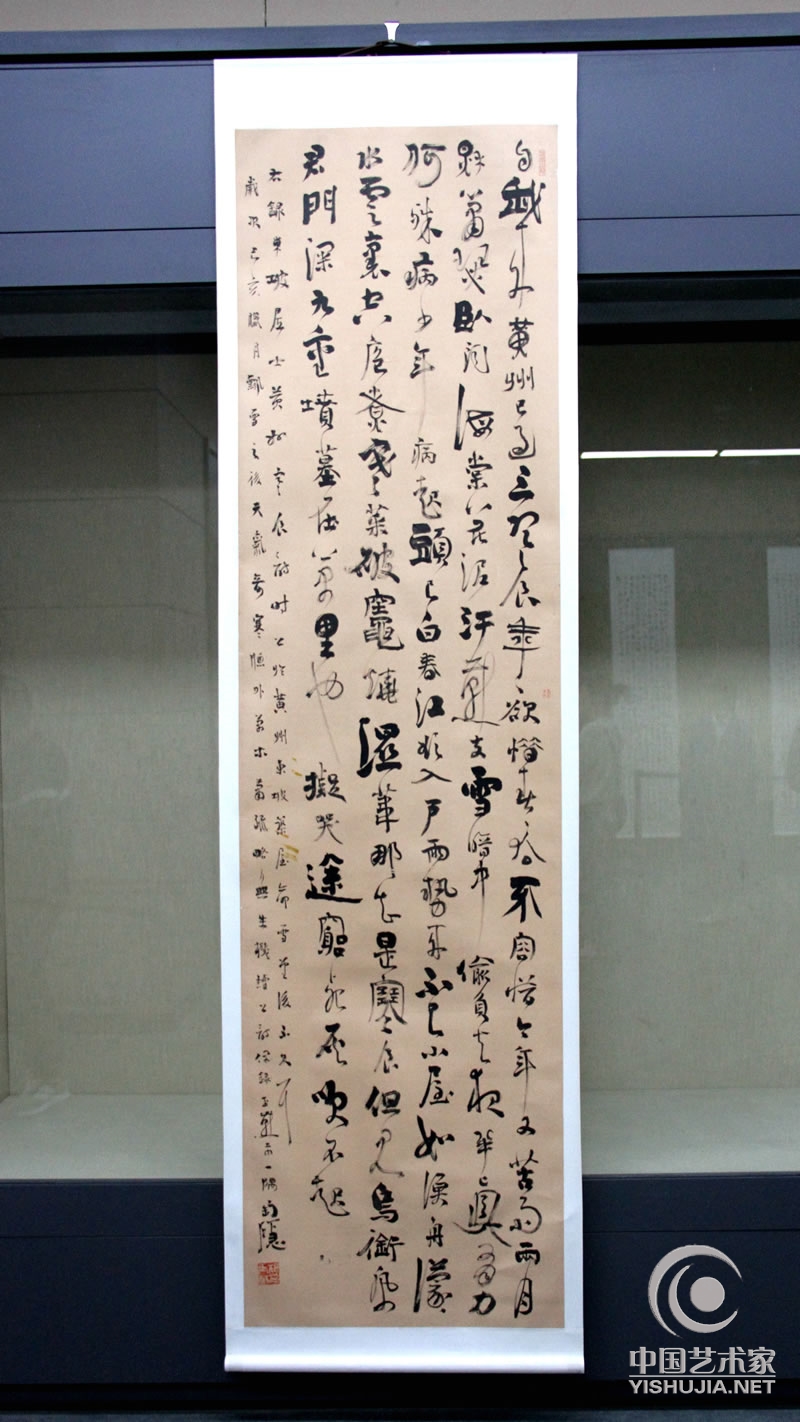 自我來黃州已過三寒食年〻欲惜春〻去不容惜今年又苦雨兩月
秋蕭瑟臥聞海棠花泥汙燕支雪暗中偷負去夜半真有力
何殊病少年病起頭已白春江欲入戶雨勢來不已小屋如漁舟濛〻
水雲裏空庖煮寒菜破竈燒濕葦那知是寒食但見烏銜帋
君門深九重墳墓在萬里也擬哭途窮死灰吹不起
右錄東坡居士黃州寒食二詩時公於黃州東坡築屋命雪堂後不久耳
歲次己亥臘月飄雪之後天氣奇寒牖外草木蕭疏略無生機讀公詩偶錄於燕市一隅
中国艺术家
YISHUJIA.NET